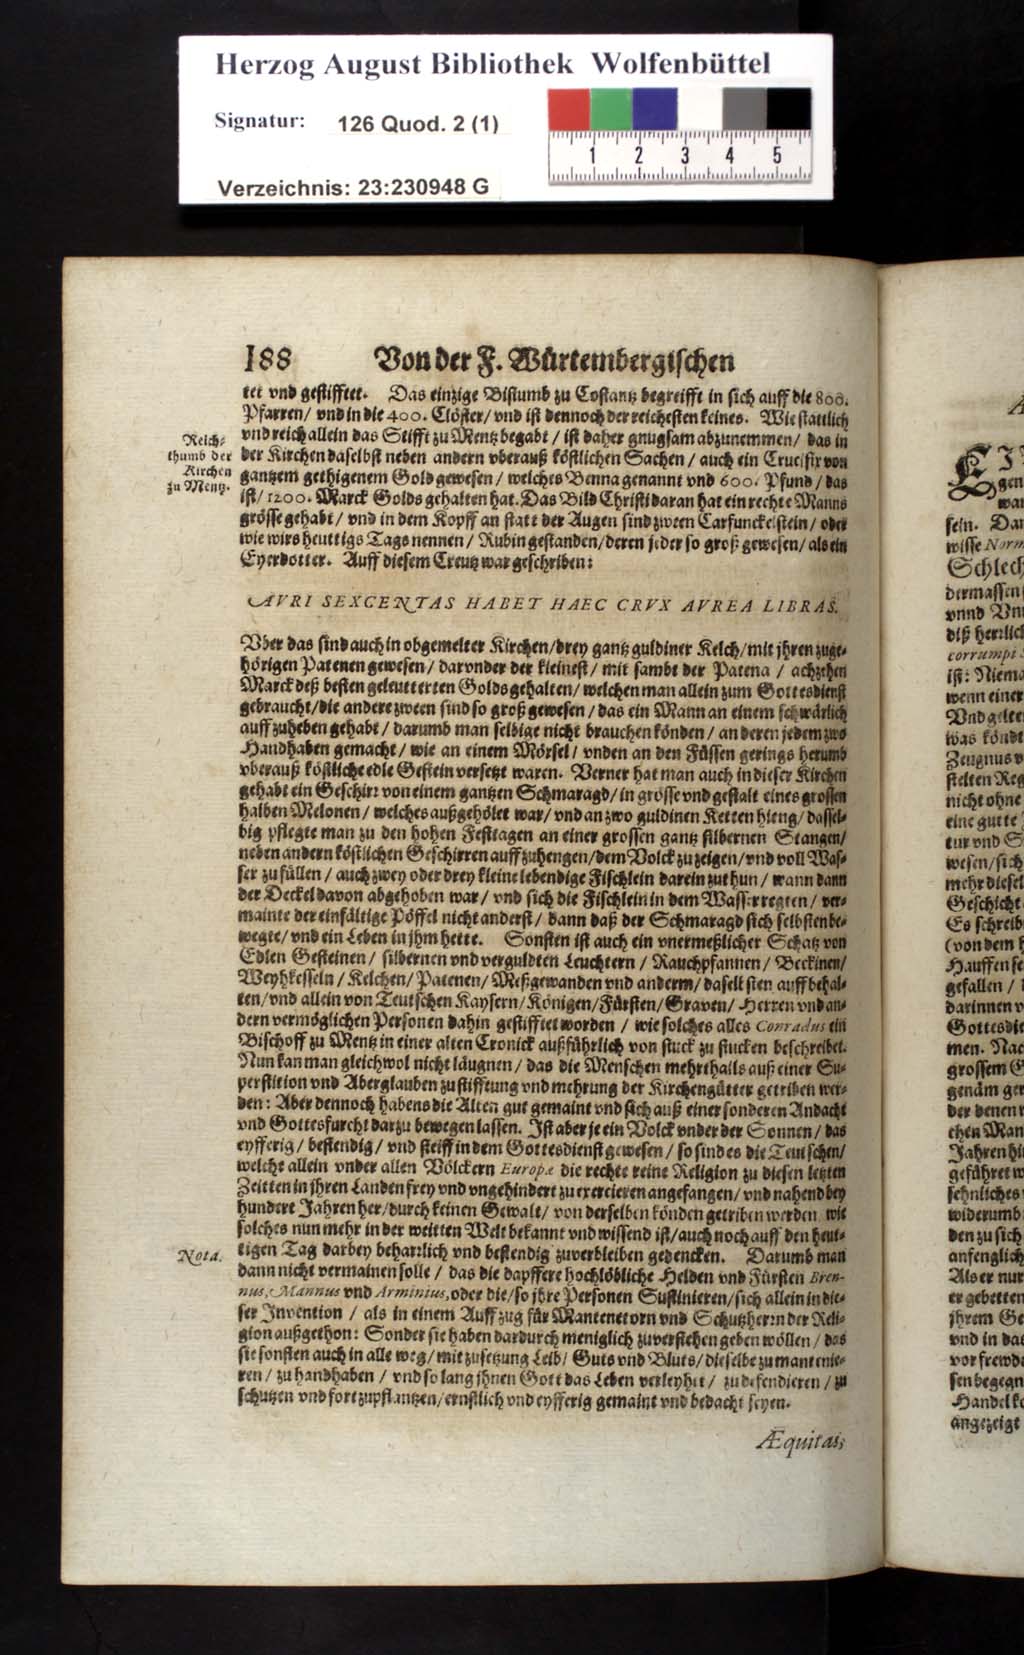 Herzog August Bibliothek Wolfenbüttel
Signatur: 126 Quod. 2 (1)
1 2 3 4 5
Verzeichnis: 23:230948 G
188 Von der F. Würtembergischen
tet vnd gestifftet. Das einzige Bistumb zu Costantz begreifft in sich auff die 800.
Pfarren/ vnd in die 400. Clöster/ vnd ist dennoch der reichesten keines. Wie stattlich
vnd reich allein das Stifft zu Mentz begabt/ ist daher gnugsam abzunemmen/ das in
der Kirchen daselbst neben andern vberauß köstlichen Sachen/ auch ein Crucifix von
gantzem gethigenem Gold gewesen/ welches Benna genannt vnd 600. Pfund/ das
ist/ 1200. Marck Golds gehalten hat. Das Bild Christi daran hat ein rechte Manns
grösse gehabt/ vnd in dem Kopff an statt der Augen sind zween Carfunckelstein/ oder
wie wirs heuttigs Tags nennen/ Rubin gestanden/ deren jeder so groß gewesen/ als ein
Eyerdotter. Auff diesem Creutz war geschriben:
Reich-
thumb der
Kirchen
zu Mentz.
AVRI SEXCENTAS HABET HAEC CRVX AVREA LIBRAS.
Vber das sind auch in obgemelter Kirchen/ drey gantz guldiner Kelch/ mit jhren zuge-
hörigen Patenen gewesen/ darvnder der kleinest/ mit sambt der Patena/ achzehen
Marck deß besten geleutterten Golds gehalten/ welchen man allein zum Gottesdienst
gebraucht/ die andere zween sind so groß gewesen/ das ein Mann an einem schwärlich
auff zuheben gehabt/ darumb man selbige nicht brauchen könden/ an deren jedem zwo
Handhaben gemacht/ wie an einem Mörsel/ vnden an den Füssen gerings herumb
vberauß köstliche edle Gestein versetzt waren. Verner hat man auch in dieser Kirchen
gehabt ein Geschirr von einem gantzen Schmaragd/ in grösse vnd gestalt eines grossen
halben Melonen/ welches außgehölet war/ vnd an zwo guldinen Ketten hieng/ dassel-
big pflegte man zu den hohen Festtagen an einer grossen gantz silbernen Stangen/
neben andern köstlichen Geschirren auff zuhengen/ dem Volck zu zeigen/ vnd voll Was-
ser zu füllen/ auch zwey oder drey kleine lebendige Fischlein darein zuthun/ wann dann
der Deckel davon abgehoben war/ vnd sich die Fischlein in dem Wasser regten/ ver-
mainte der einfältige Pöffel nicht anderst/ dann daß der Schmaragd sich selbsten be-
wegte/ vnd ein Leben in jhm hette. Sonsten ist auch ein vnermeßlicher Schatz von
Edlen Gesteinen/ silbernen vnd verguldten Leuchtern/ Rauchpfannen/ Beckinen/
Weyhkesseln/ Kelchen/ Patenen/ Meßgewanden vnd anderm/ daselbsten auffbehal-
ten/ vnd allein von Teutschen Kaysern/ Königen/ Fürsten/ Graven/ Herren vnd an-
dern vermöglichen Personen dahin gestifftet worden/ wie solches alles Conradus ein
Bischoff zu Mentz in einer alten Cronick außführlich von stuck zu stucken beschreibet.
Nun kan man gleichwol nicht läugnen/ das die Menschen mehrthails auß einer Su-
perstition vnd Aberglauben zu stifftung vnd mehrung der Kirchengütter getriben wer-
den: Aber dennoch habens die Alten gut gemaint vnd sich auß einer sonderen Andacht
vnd Gottesfurcht darzu bewegen lassen. Ist aber je ein Volck vnder der Sonnen/ das
eyfferig/ bestendig/ vnd steiff in dem Gottesdienst gewesen/ so sind es die Teutschen/
welche allein vnder allen Völckern Europæ die rechte reine Religion zu diesen letzten
Zeitten in jhren Landen frey vnd vngehindert zu exercieren angefangen/ vnd nahend bey
hundert Jahren her/ durch keinen Gewalt/ von derselben könden getriben werden wie
solches nun mehr in der weitten Welt bekannt vnd wissend ist/ auch noch auff den heut-
tigen Tag darbey beharrlich vnd bestendig zuverbleiben gedencken. Darumb man
Nota.
dann nicht vermainen solle/ das die dapffere hochlöbliche Helden vnd Fürsten Bren-
nus, Mannus vnd Arminius, oder die/ so jhre Personen Sustinieren/ sich allein in die-
ser Invention/ als in einem Auffzug für Mantenetorn vnd Schutzherrn der Reli-
gion außgethon: Sonder sie haben dardurch meniglich zuverstehen geben wöllen/ das
sie sonsten auch in alle weg/ mit zusetzung Leib/ Guts vnd Bluts/ dieselbe zu mantenie-
ren/ zu handhaben/ vnd so lang jhnen Gott das Leben verleyhet/ zu defendieren/ zu
schutzen vnd fort zupflantzen/ ernstlich vnd eyfferig gemaint vnd bedacht seyen.
Æquitas,
gen
war
sein. Dar
wisse Norm
Schlech
dermassen
vnnd Vnt
diß herrlich
corrumpi
ist: Niema
wenn einer
Vnd gelte
was köndt
Zeugnus v
stelten Reg
nicht ohne
eine gutte
tur vnd S
wesen/ sich
mehr diesel
Geschicht
Es schreib
(von dem h
Hauffen se
gefallen/
darinnen v
Gottesdie
men. Nac
grossem G
genäm ger
der denen
chen Man
Jahren hin
geführet w
sehnliches
widerumb
den zu sich
anfenglich
Als er nur
er gebetten
jhrem Ge
vnd in das
vor frewde
sen begegn
Handel ke
angezeigt